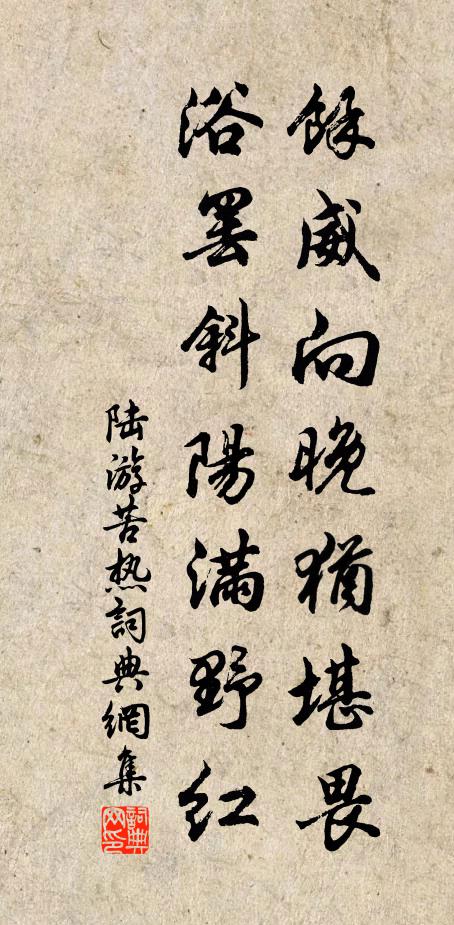 餘威向晚猶堪畏
浴罷斜陽滿野紅
陆游苦热詞典網集
詞典网印